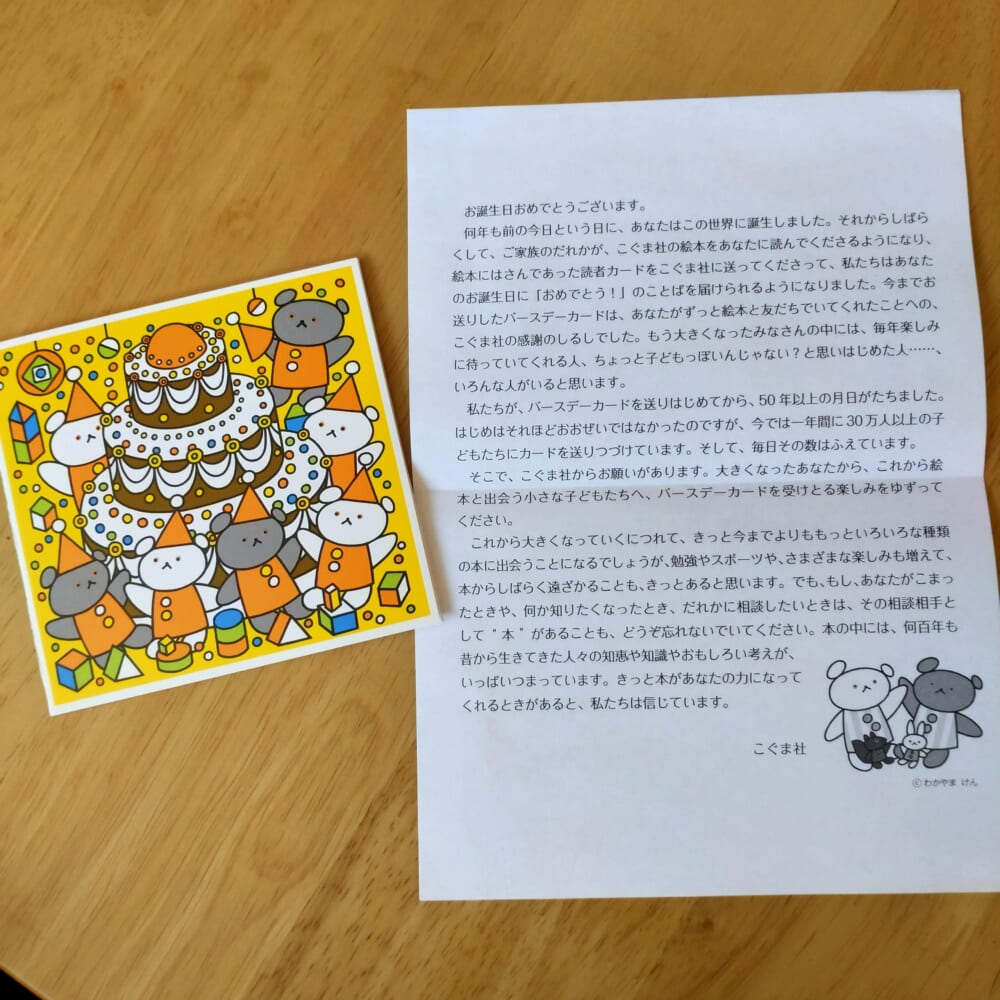 お誕生日おめでとうございます。
何年も前の今日という日に、あなたはこの世界に誕生しました。それからしばら
くして、ご家族のだれかが、こぐま社の絵本をあなたに読んでくださるようになり、
絵本にはさんであった読者カードをこぐま社に送ってくださって、私たちはあなた
のお誕生日に「おめでとう！」のことばを届けられるようになりました。今までお
送りしたバースデーカードは、あなたがずっと絵本と友だちでいてくれたことへの、
こぐま社の感謝のしるしでした。もう大きくなったみなさんの中には、毎年楽しみ
に待っていてくれる人、ちょっと子どもっぽいんじゃない？と思いはじめた人……、
いろんな人がいると思います。
私たちが、バースデーカードを送りはじめてから、50年以上の月日がたちました。
はじめはそれほどおおぜいではなかったのですが、今では一年間に30万人以上の子
どもたちにカードを送りつづけています。そして、毎日その数はふえています。
そこで、こぐま社からお願いがあります。大きくなったあなたから、これから絵
本と出会う小さな子どもたちへ、バースデーカードを受けとる楽しみをゆずって
ください。
これから大きくなっていくにつれて、きっと今までよりももっといろいろな種類
の本に出会うことになるでしょうが、勉強やスポーツや、さまざまな楽しみも増えて、
本からしばらく遠ざかることも、きっとあると思います。でも、もし、あなたがこまっ
たときや、何か知りたくなったとき、だれかに相談したいときは、その相談相手と
して“本”があることも、どうぞ忘れないでいてください。本の中には、何百年も
昔から生きてきた人々の知恵や知識やおもしろい考えが、
いっぱいつまっています。きっと本があなたの力になって
くれるときがあると、私たちは信じています。
こぐま社
©わかやま けん